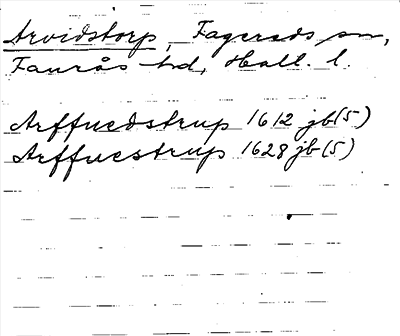 Arvidstorp, Fagereds sn,
Faurås hd, Hall. l.
Arffuedstrup 1612 jb(5)
Arffuestrup 1628 jb(5)